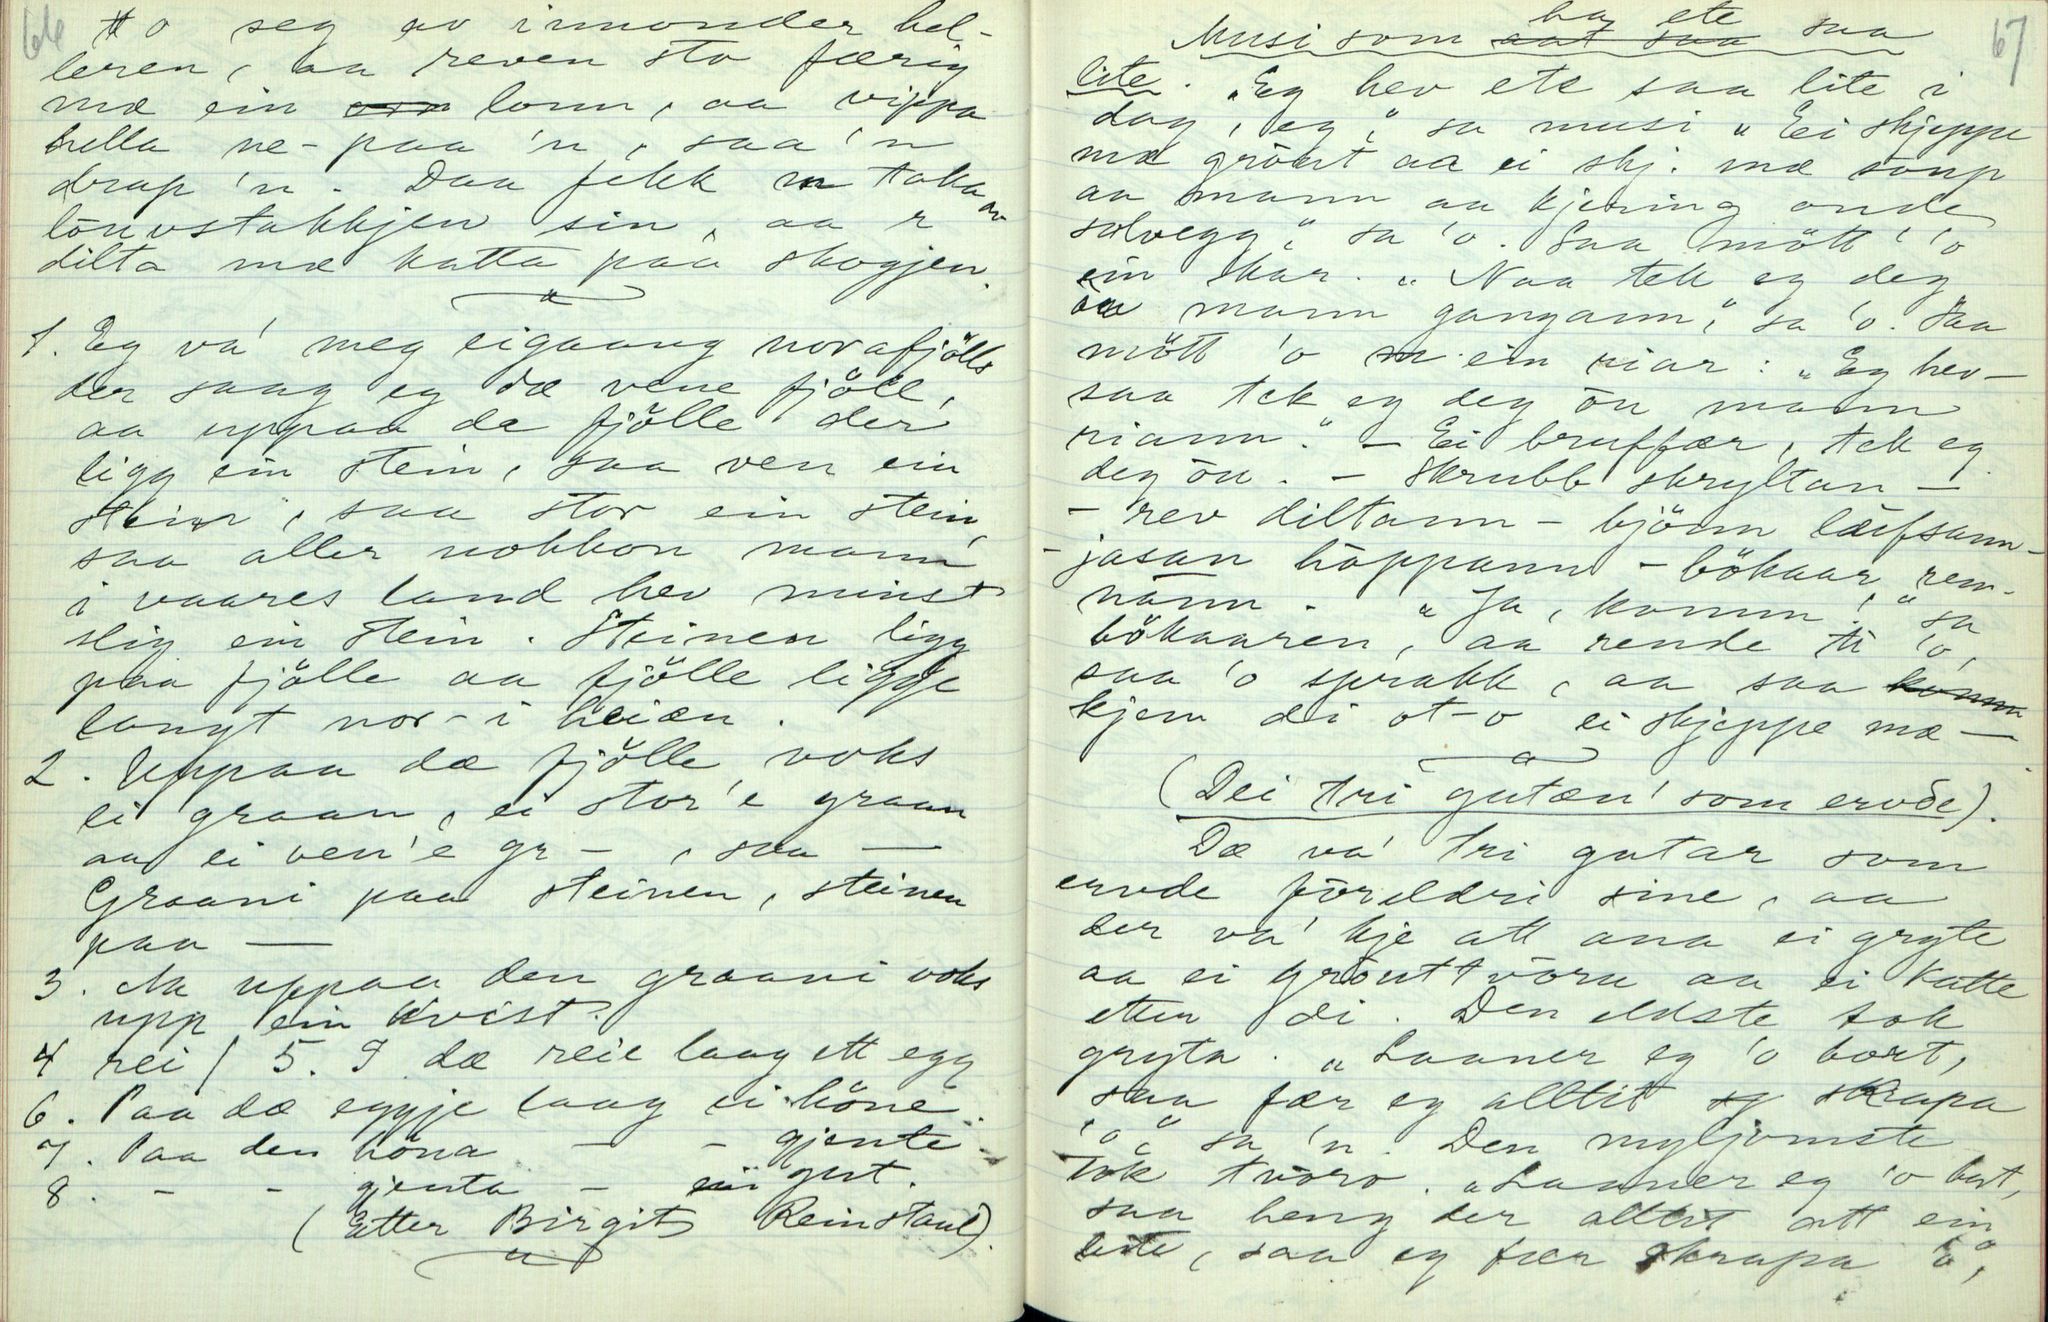 66
to seg av imonder hel-
leren, aa reven sto færig
mæ ein lonn, aa vippa
hella ne-paa 'n, saa 'n
drap 'n. Daa fekk 'n taka av
löuvstakkjen sin, aa
dilta mæ katta paa skogjen.
1. Eg va' meg eigaang norafjölls
der saag eg dæ vene fjöll,
aa uppaa dæ fjölle der
ligg ein stein, saa ven ein
stein, saa stor ein stein,
saa aller nokkon mann
i vaares land hev minst
slig ein stein. Steinen ligg
paa fjölle aa fjölle ligge
langt nor-i heiæn.
2. Uppaa dæ fjölle voks
ei graan, ei stor'e graan
aa ei ven'e gr-, saa —
Graani paa steinen, steinen
paa —
3. Aa uppaa den graani voks
upp ein kvist.
4 rei / 5. I dæ reie laag ett egg
6. Paa dæ eggje laag ei höne.
7. Paa den höna — - gjente.
8. - - gjenta - ein gut.
(Etter Birgit Reinstaul).
67
Musi som aat saa ha ete saa
lite. "Eg hev ete saa lite i
dag, eg," sa musi "Ei skjeppe
mæ gröut aa ei skj. mæ soup
aa mann aa kjering onde
solvegg," sa 'o. Saa mött' 'o
ein skar. "Naa tek eg deg
öu mann gangann," sa 'o. Saa
mött 'o ein riar: "Eg hev —
saa tek eg deg öu mann
riann." — Ei bruffær, tek eg
deg öu. — Skrubb skryltan —
- rev diltann - björn läifsann -
- jasan höppann - bökaar ren-
nann. "Ja, komm!" sa
bökaaren, aa rende ti 'o,
saa 'o sprakk, aa saa komm
kjem di ot-o ei skjeppe mæ —
(Dei tri gutæn' som ervde).
Dæ va' tri gutar som
ervde föreldri sine, aa
der va' kje att ana ei gryte
aa ei gröuttvöru aa ei katte
etter di. Den eldste tok
gryta. "Laaner eg 'o bort,
saa fær eg alltit skrapa
'o," sa 'n. Den myljomste
tok tvöro. "Laaner eg 'o bort,
saa heng der alltit att ein
lite, saa eg fær skrapa 'o,"